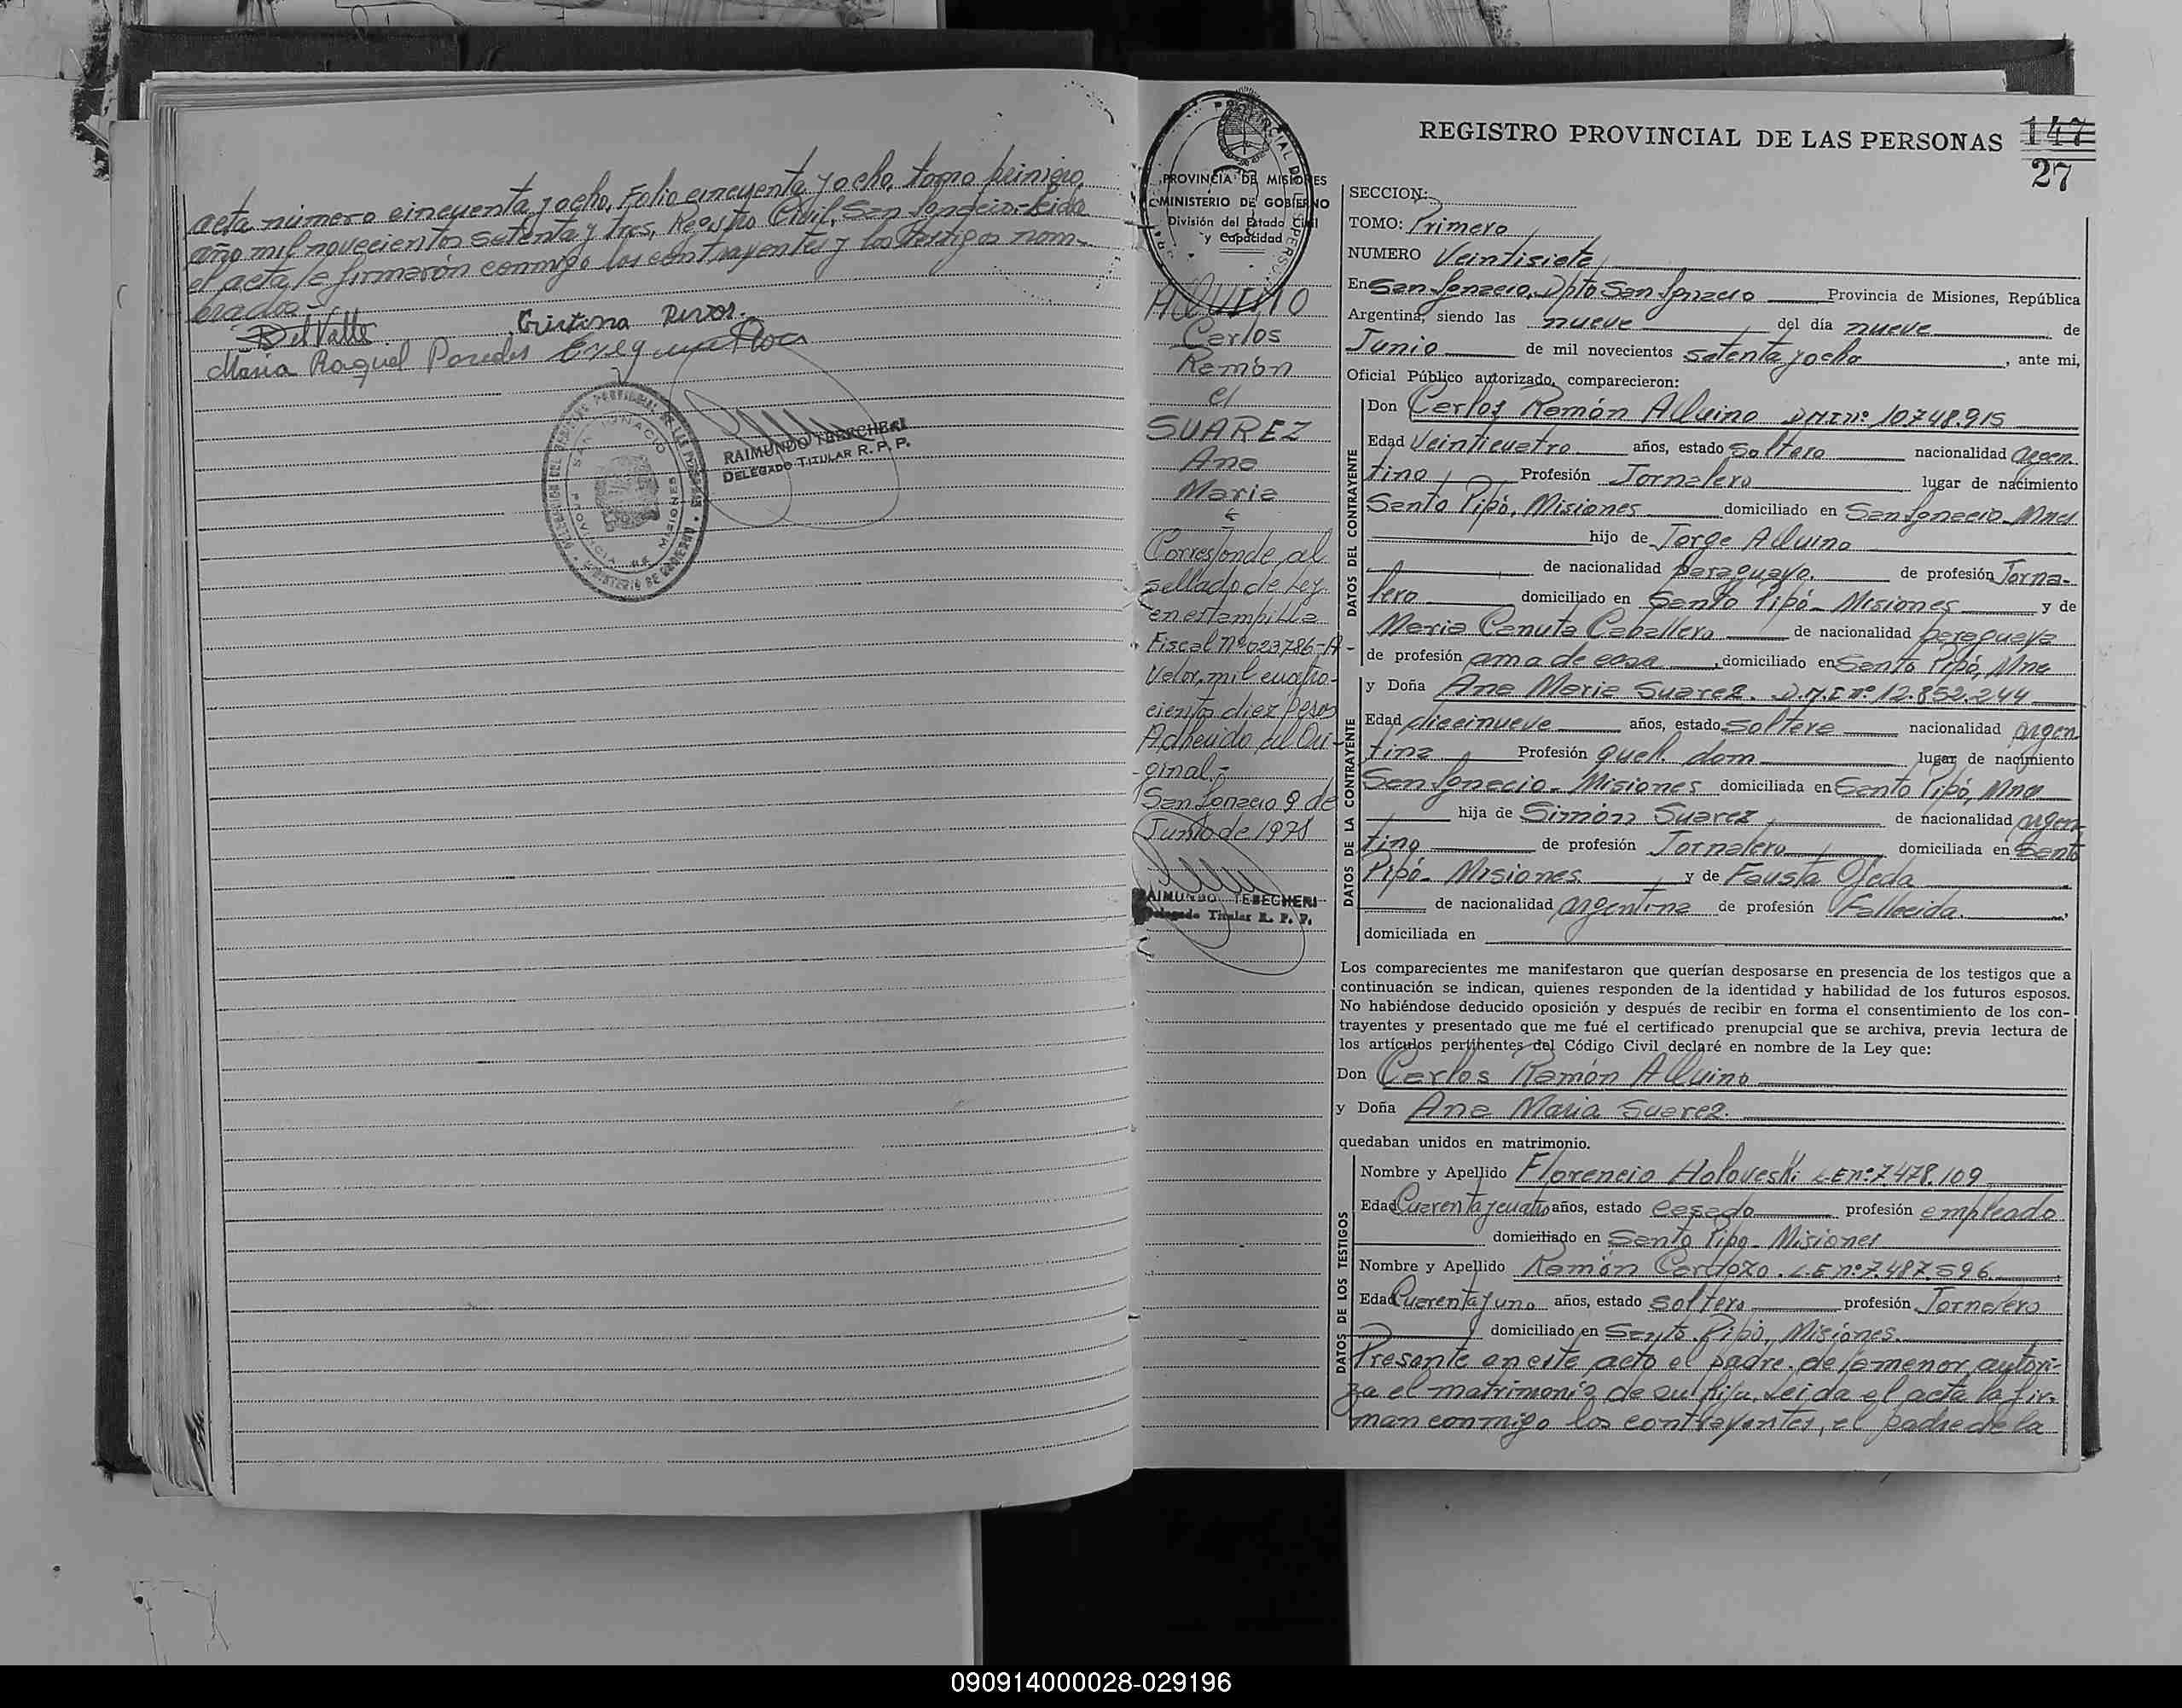 acta número cincuenta y ocho, Folio cincuenta y ocho, tomo primero,
año mil novecientos setenta y tres, Registro Civil, San Ignacio.- Leida
el acta, la firmarón conmigo los contrayentes y los testigos nom-
brados.-
Del Valle Cristina Rivas
Maria Raquel Paredes
RAIMUNDO TEBECHERI
DELEGADO TITULAR R. P. P.
SAN IGNACIO
PROVINCIA DE MISIONES
MINISTERIO DE GOBIERNO
PROVINCIA DE MISIONES
MINISTERIO DE GOBIERNO
División del Estado Civil
y Capacidad
ALVINO
Carlos
Ramón
c/
SUAREZ
Ana
Maria
Corresponde al
sellado de Ley
en estampilla
Fiscal Nº 023786-A-
Valor, mil cuatro-
ciento diez pesos
Adherido al Ori-
ginal.-
San Ignacio 9 de
Junio de 1978
RAIMUNDO TEBECHERI
Delegado Titular R. P. P.
REGISTRO PROVINCIAL DE LAS PERSONAS 147
27
SECCION:
TOMO: Primero
NUMERO Veintisiete
En San Ignacio, Dpto San Ignacio Provincia de Misiones, República
Argentina, siendo las nueve del día nueve de
Junio de mil novecientos setenta y ocho, ante mi,
Oficial Público autorizado, comparecieron:
DATOS DEL CONTRAYENTE
Don Carlos Ramón Alvino DNI nº 10.748.915
Edad Veinticuatro años, estado soltero nacionalidad argen-
tino Profesión Jornalero lugar de nacimiento
Santo Pipó, Misiones domiciliado en San Ignacio Mnes
hijo de Jorge Alvino
de nacionalidad paraguayo. de profesión Jorna-
lero domiciliado en Santo Pipó - Misiones y de
Maria Canuta Caballero de nacionalidad paraguaya
de profesión ama de casa, domiciliado en Santo Pipó, Mnes
DATOS DE LA CONTRAYENTE
y Doña Ana Maria Suarez. D.N.I nº 12.852.244
Edad diecinueve años, estado soltera nacionalidad argen
tina Profesión queh. dom. lugar de nacimiento
San Ignacio - Misiones domiciliada en Santo Pipó, Mnes
hija de Simón Suarez de nacionalidad argen-
tino de profesión Jornalero domiciliada en Santo
Pipó - Misiones. y de Fausta Ojeda
de nacionalidad argentina de profesión Fallecida.
domiciliada en
Los comparecientes me manifestaron que querían desposarse en presencia de los testigos que a
continuación se indican, quienes responden de la identidad y habilidad de los futuros esposos.
No habiéndose deducido oposición y después de recibir en forma el consentimiento de los con-
trayentes y presentado que me fué el certificado prenupcial que se archiva, previa lectura de
los artículos pertinentes del Código Civil declaré en nombre de la Ley que:
Don Carlos Ramón Alvino
y Doña Ana Maria Suarez.
quedaban unidos en matrimonio.
DATOS DE LOS TESTIGOS
Nombre y Apellido Florencio Holoveski L.E nº 7.478.109
Edad Cuarenta y cuatro años, estado casado profesión empleado
domiciliado en Santo Pipo - Misiones
Nombre y Apellido Ramón Cardozo. L.E nº 7.487.596
Edad Cuarenta y uno años, estado soltero profesión Jornalero
domiciliado en Santo Pipó, Misiones.
Presente en este acto el padre de la menor autori-
za el matrimonio de su hija. Leida el acta la fir-
man conmigo los contrayentes, el padre de la
090914000028-029196